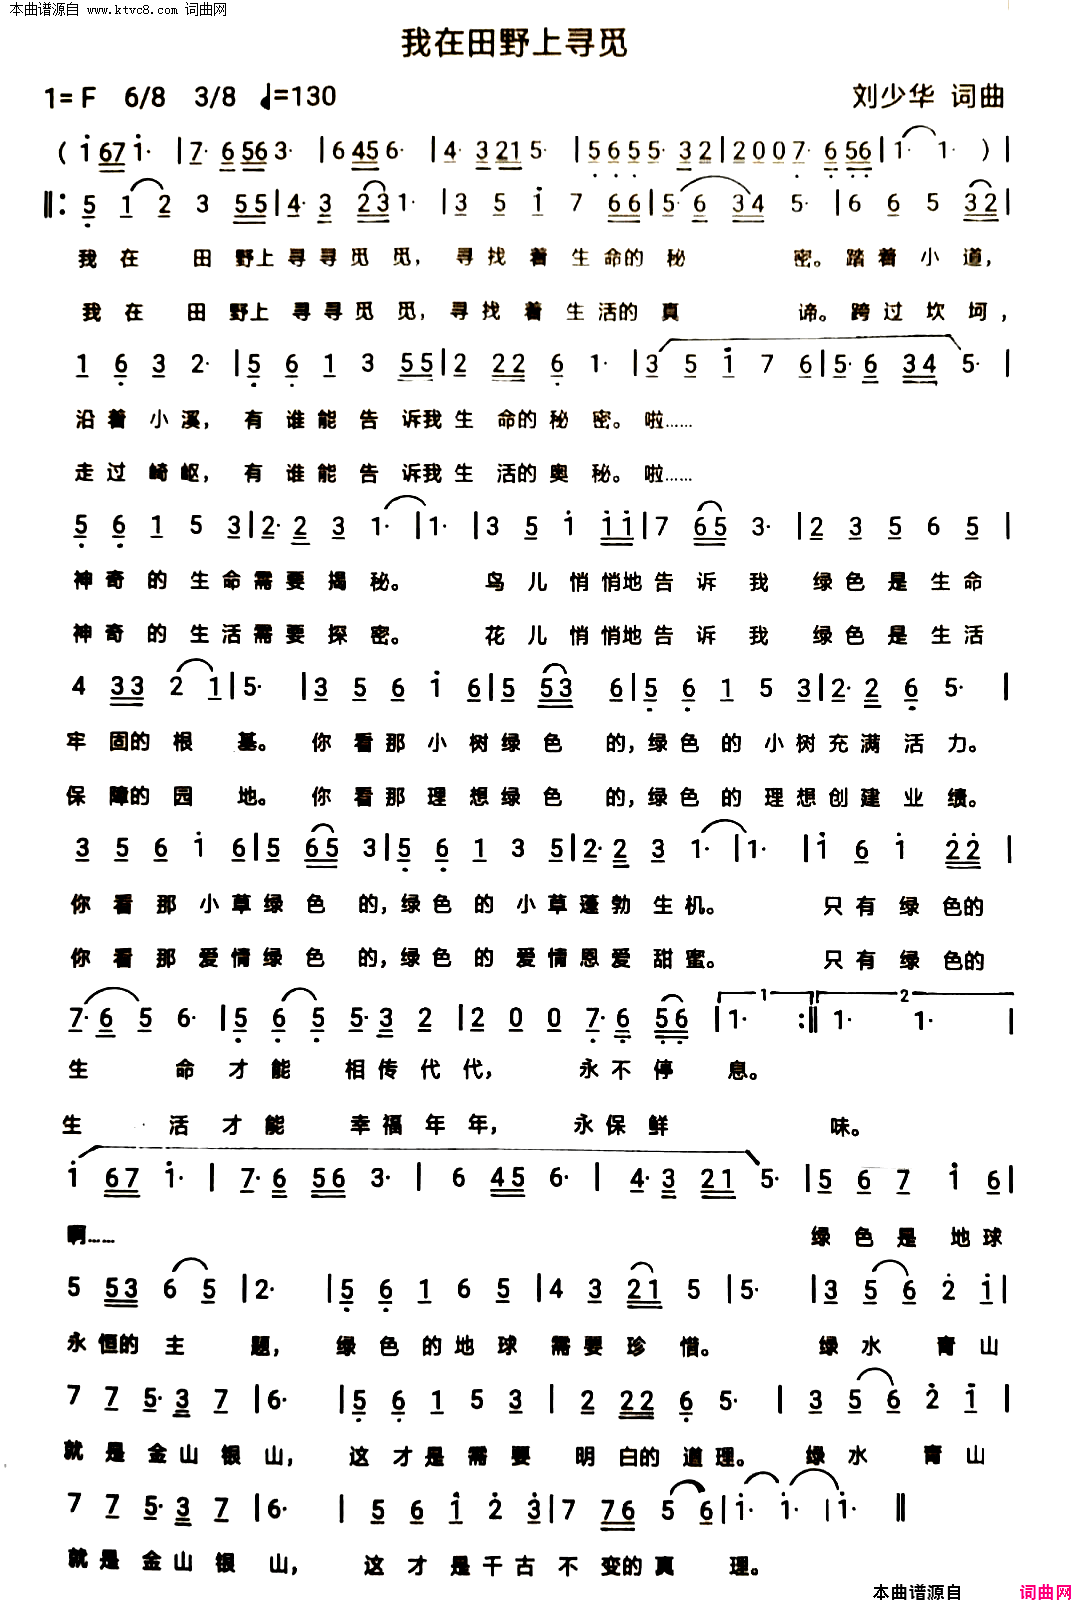 本曲谱源自 www.ktvc8.com 词曲网
我在田野上寻觅
1=F 6/8 3/8 ♩=130 刘少华 词曲
( i 67 i· | 7· 6 56 3· | 6 45 6· | 4· 3 21 5· | 5 6 5 5· 32 | 2 0 0 7· 6 56 | 1· 1· ) |
‖: 5 1 2 3 55 | 4· 3 23 1· | 3 5 i 7 66 | 5· 6 34 5· | 6 6 5 32 |
我在 田 野上寻寻觅 觅, 寻找着生命的秘 密。踏着小道,
我在 田 野上寻寻觅 觅, 寻找着生活的真 谛。跨过坎坷,
1 6 3 2· | 5 6 1 3 55 | 2 22 6 1· | 3 5 i 7 6 | 5· 6 34 5· |
沿着小溪, 有谁能告诉我生 命的秘密。啦……
走过崎岖, 有谁能告诉我生 活的奥秘。啦……
5 6 1 5 3 | 2· 2 3 1· | 1· | 3 5 i ii | 7 65 3· | 2 3 5 6 5 |
神奇的生命需要揭秘。 鸟儿悄悄地告诉我 绿色是生命
神奇的生活需要探密。 花儿悄悄地告诉我 绿色是生活
4 33 2 1 | 5· | 3 5 6 i 6 | 5 53 6 | 5 6 1 5 3 | 2· 2 6 5· |
牢 固的根 基。 你看那小树绿色 的,绿色的小树充满活力。
保 障的园 地。 你看那理想绿色 的,绿色的理想创建业绩。
3 5 6 i 6 | 5 65 3 | 5 6 1 3 5 | 2· 2 3 1· | 1· | i 6 i 22 |
你看那小草绿色 的,绿色的小草蓬勃生机。 只有绿色的
你看那爱情绿色 的,绿色的爱情恩爱甜蜜。 只有绿色的
7· 6 5 6· | 5 6 5 5· 3 2 | 2 0 0 7· 6 56 | 1 1· :‖ 2 1· 1· |
生 命才能 相传代代, 永不停 息。
生 活才能 幸福年年, 永保鲜 味。
i 67 i· | 7· 6 56 3· | 6 45 6· | 4· 3 21 5· | 5 6 7 i 6 |
啊…… 绿色是地球
5 53 6 5 | 2· | 5 6 1 6 5 | 4 3 21 5 | 5· | 3 5 6 2 i |
永恒的主 题, 绿色的地球需要珍 惜。 绿水 青山
7 7 5· 3 7 | 6· | 5 6 1 5 3 | 2 22 6 5· | 3 5 6 2 i |
就是金山银山, 这才是需要 明白的道理。 绿水 青山
7 7 5· 3 7 | 6· | 5 6 i 2 3 | 7 76 5 6 | i· i· | i· ‖
就是金山银山, 这才是千古不变的真 理。
本曲谱源自 词曲网